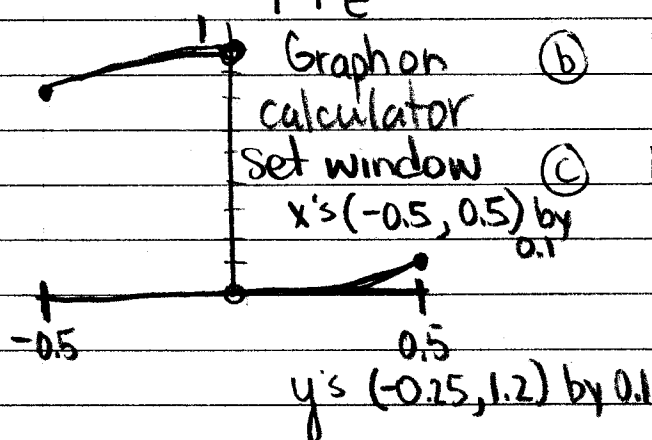 1+e
1
Graph on (b)
calculator
Set window (c)
x's (-0.5, 0.5) by
0.1
-0.5 0.5
y's (-0.25, 1.2) by 0.1